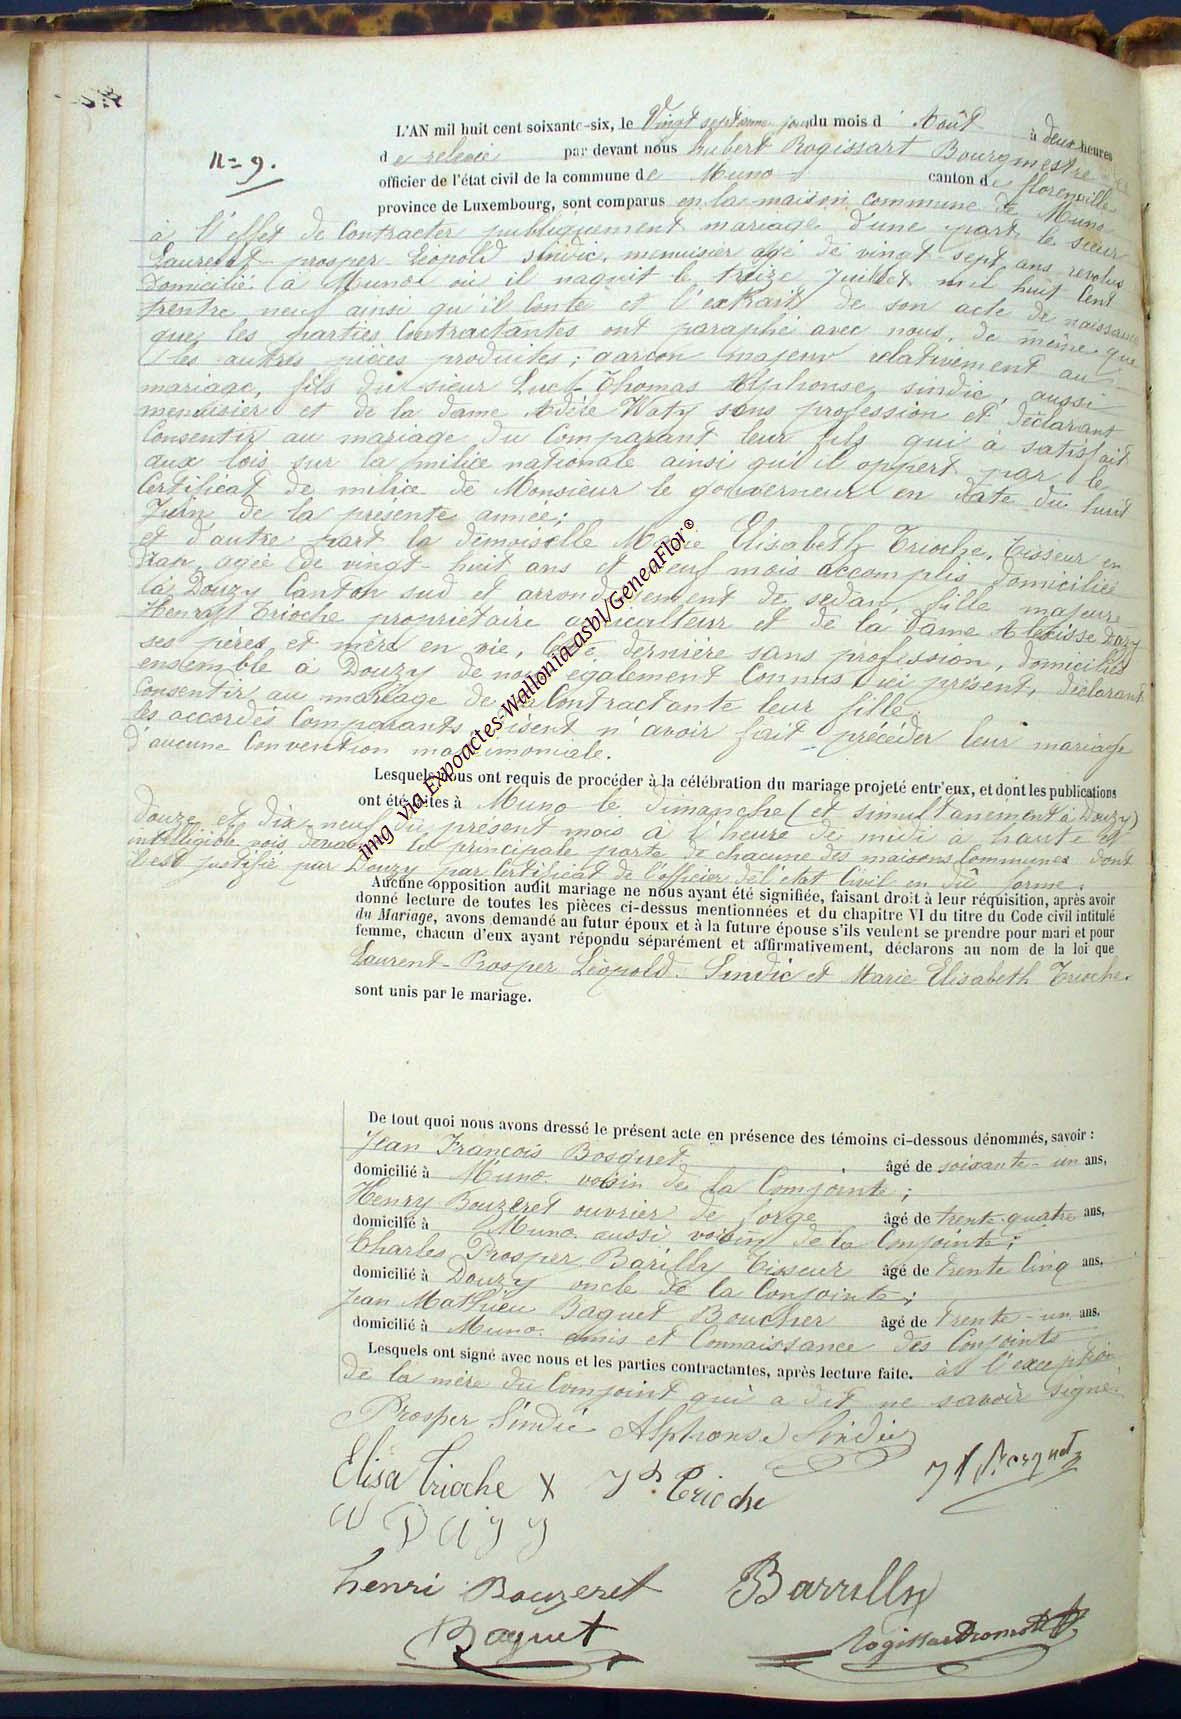 N= 9.
L'AN mil huit cent soixante-six, le Vingt septieme jour du mois d' Août à deux heures
de relevée par devant nous hubert Rogissart Bourgmestre
officier de l'état civil de la commune de Muno canton de florenville
province de Luxembourg, sont comparus en la maison commune de Muno
à l'effet de Contracter publiquement mariage d'une part le sieur
Laurent prosper Léopold Sindic, menuisier agé de vingt-sept ans revolus
Domicilié à Muno où il naquit le treize Juillet mil huit Cent
trentre neuf ainsi qu'il Conte et l'extrait de son acte de naissance
que les parties Contractantes ont paraphé avec nous, de même que
les autres pièces produites; garcon majeur relativement au
mariage, fils du sieur Luc-Thomas Alphonse, sindic, aussi
menuisier et de la dame Adèle Waty sans profession et déclarant
Consentir au mariage du Comparant leur fils qui à satisfait
aux lois sur la milice nationale ainsi qu'il oppert par le
Certificat de milice de Monsieur le gouverneur en date du huit
Juin de la présente année;
et d'autre part la demoiselle Marie Elisabeth Trioche, Tisseur en
Drap, agée de vingt-huit ans et neuf mois accomplis, domiciliée
à Douzy Canton sud et arrondissement de sedan, fille majeure
Henry Trioche propriétaire agriculteur et de la Dame Alexisse Dazy
ses pères et mère en vie, Cette dernière sans profession, domiciliés
ensemble à Douzy de nous également Connus, ici présent, déclarant
Consentir au mariage de la Contractante leur fille.
les accordés Comparants disent n'avoir fait précéder leur mariage
d'aucune Convention matrimoniale.
Lesquels nous ont requis de procéder à la célébration du mariage projeté entr'eux, et dont les publications
ont été faites à Muno le Dimanche (et simultanément à Douzy)
Douze et dix-neuf du présent mois à l'heure de midi à haute et
intelligible voix devant la principale porte de chacune des maisons Communes dont
il est justifié par Douzy par Certificat de l'officier de l'état Civil en dû forme.
Aucune opposition audit mariage ne nous ayant été signifiée, faisant droit à leur réquisition, après avoir
donné lecture de toutes les pièces ci-dessus mentionnées et du chapitre VI du titre du Code civil intitulé
du Mariage, avons demandé au futur époux et à la future épouse s'ils veulent se prendre pour mari et pour
femme, chacun d'eux ayant répondu séparément et affirmativement, déclarons au nom de la loi que
Laurent-Prosper Léopold. Sindic et Marie Elisabeth Trioche.
sont unis par le mariage.
De tout quoi nous avons dressé le présent acte en présence des témoins ci-dessous dénommés, savoir :
Jean François Bosquet âgé de soixante-un ans,
domicilié à Muno voisin de la Conjointe;
Henry Bouzeret ouvrier de forge âgé de trente-quatre ans,
domicilié à Muno aussi voisin de la Conjointe;
Charles Prosper Barilly Tisseur âgé de trente Cinq ans,
domicilié à Douzy oncle de la Conjointe;
Jean Mathieu Baguet Boucher âgé de trente-un ans,
domicilié à Muno amis et Connaissance des Conjoints
Lesquels ont signé avec nous et les parties contractantes, après lecture faite. à l'exception
de la mère du Conjoint qui a dit ne savoir signé.
Prosper Sindic Alphonse Sindic
Elisa Trioche X Trioche
Dazy
henri Bouzeret Barrilly
Baguet
img via Expoactes-Wallonia asbl/GeneaFlor®